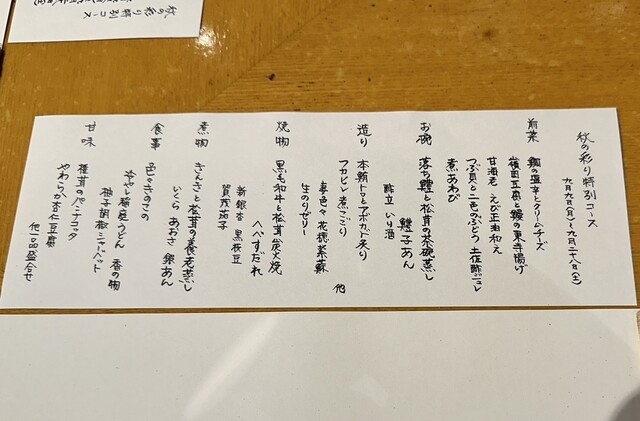 秋の彩り特別コース
九月九日(月)〜九月二十八日(土)
前菜 鯛の塩辛とクリームチーズ
嶺岡豆腐と鰻の東寺揚げ
甘海老 えび正油和え
つぶ貝と二色のぶどう 土佐酢ジュレ
煮あわび
お碗 落ち鱧と松茸の茶碗蒸し
鱧子あん
酢立 いり酒
造り 本鮪トロとアボカド炙り
フカヒレ煮こごり 他
色々 花穂紫蘇
生のりゼリー
焼物 黒毛和牛と松茸炭火焼
へべすだれ
新銀杏 黒枝豆
賀茂茄子
煮物 きんきと松茸の養老蒸し
いくら あおさ 銀あん
食事 色々きのこの
冷やし稲庭うどん 香の物
柚子胡椒シャーベット
甘味 椎茸のパンナコッタ
やわらか杏仁豆腐
他一品盛合せ
秋の彩り特別コース